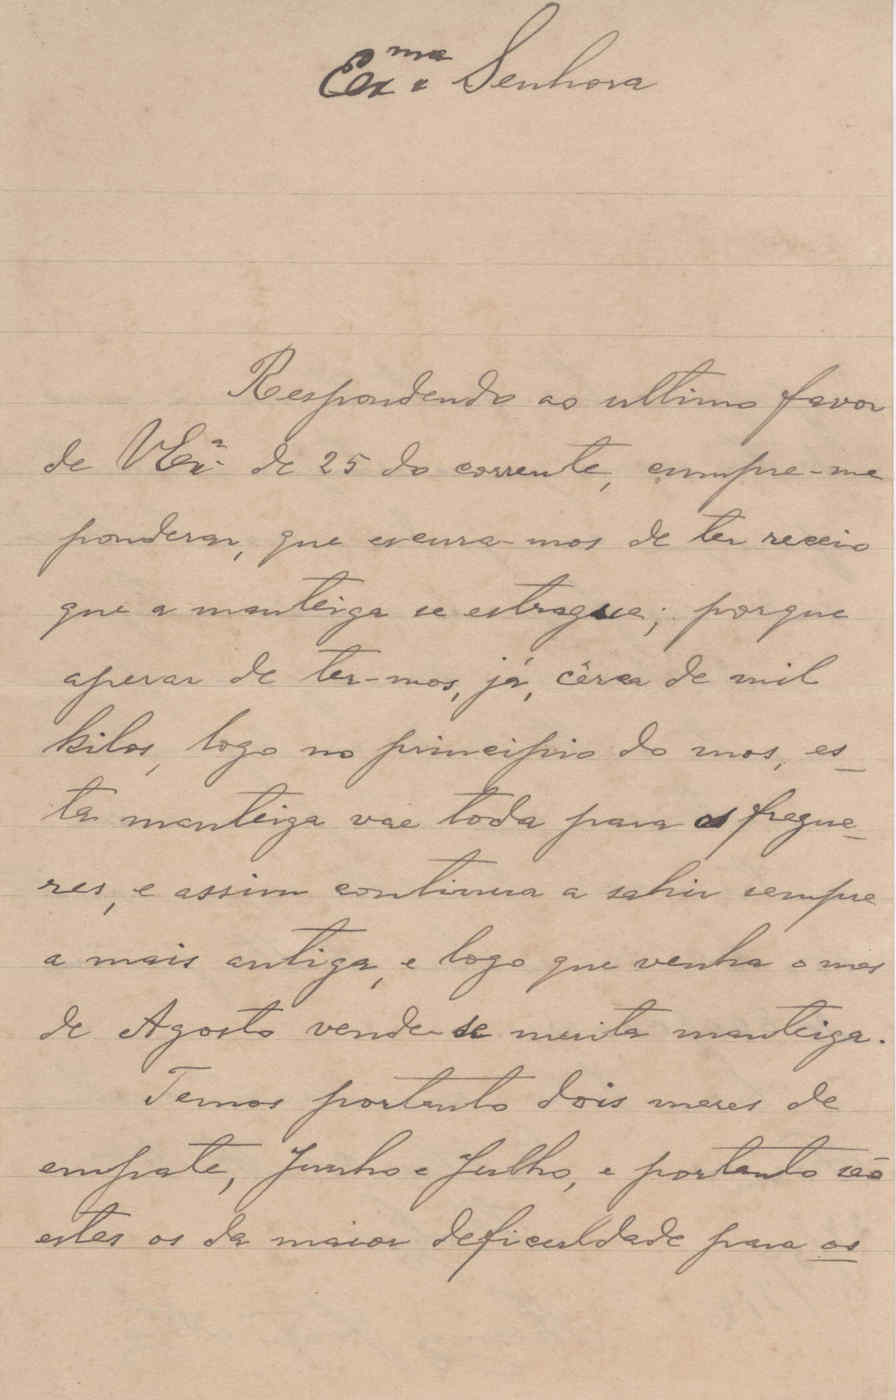 Exma Senhora
Respondendo ao ultimo favor
de VExa. de 25 do corrente, cumpre-me
ponderar, que escusa-mos de ter receio
que a manteiga se estrague; porque
apesar de ter-mos, já, cêrca de mil
kilos, logo no principio do mes, es_
ta manteiga vae toda para os fregue_
zes, e assim continua a sahir sempre
a mais antiga, e logo que venha o mes
de Agosto vende-se muita manteiga.
Temos portanto dois mezes de
empate, Junho e Julho, e portanto são
estes os da maior deficuldade para os